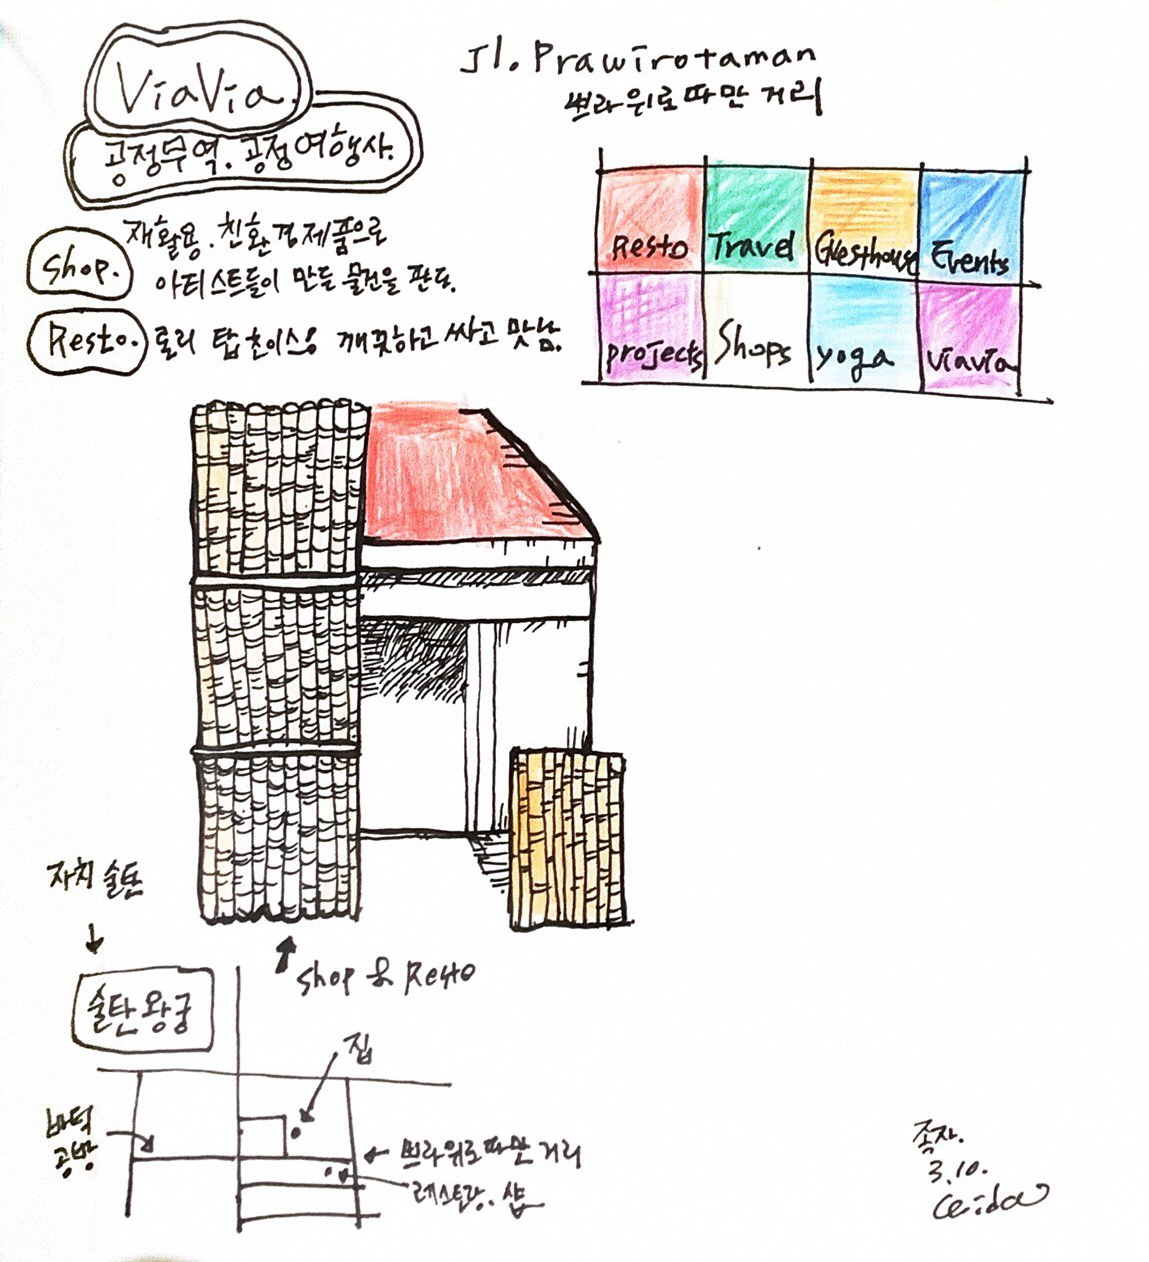 ViaVia.
공정무역. 공정여행사.
Jl. Prawirotaman
쁘라위로따만 거리
Shop.
재활용. 친환경제품으로
아티스트들이 만든 물건을 판다.
Resto.
론리 탑 초이스용 깨끗하고 싸고 맛남.
Resto Travel Guesthouse Events
projects Shops yoga viavia
자치 술탄
술탄왕궁
Shop & Resto
집
바틱
공방
쁘라위로따만 거리
레스토랑. 샵
족자.
3.10.